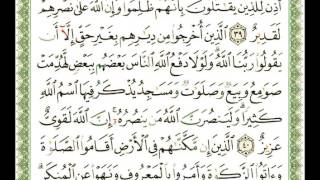 أُذِنَ لِلَّذِينَ يُقَٰتَلُونَ بِأَنَّهُمْ ظُلِمُوا۟ وَإِنَّ ٱللَّهَ عَلَىٰ نَصْرِهِمْ
لَقَدِيرٌ ٣٩ ٱلَّذِينَ أُخْرِجُوا۟ مِن دِيَٰرِهِم بِغَيْرِ حَقٍّ إِلَّآ أَن
يَقُولُوا۟ رَبُّنَا ٱللَّهُ وَلَوْلَا دَفْعُ ٱللَّهِ ٱلنَّاسَ بَعْضَهُم بِبَعْضٍ لَّهُدِّمَتْ
صَوَٰمِعُ وَبِيَعٌ وَصَلَوَٰتٌ وَمَسَٰجِدُ يُذْكَرُ فِيهَا ٱسْمُ ٱللَّهِ
كَثِيرًا وَلَيَنصُرَنَّ ٱللَّهُ مَن يَنصُرُهُۥٓ إِنَّ ٱللَّهَ لَقَوِىٌّ
عَزِيزٌ ٤٠ ٱلَّذِينَ إِن مَّكَّنَّٰهُمْ فِى ٱلْأَرْضِ أَقَامُوا۟ ٱلصَّلَوٰةَ
وَءَاتَوُا۟ ٱلزَّكَوٰةَ وَأَمَرُوا۟ بِٱلْمَعْرُوفِ وَنَهَوْا۟ عَنِ ٱلْمُنكَرِ